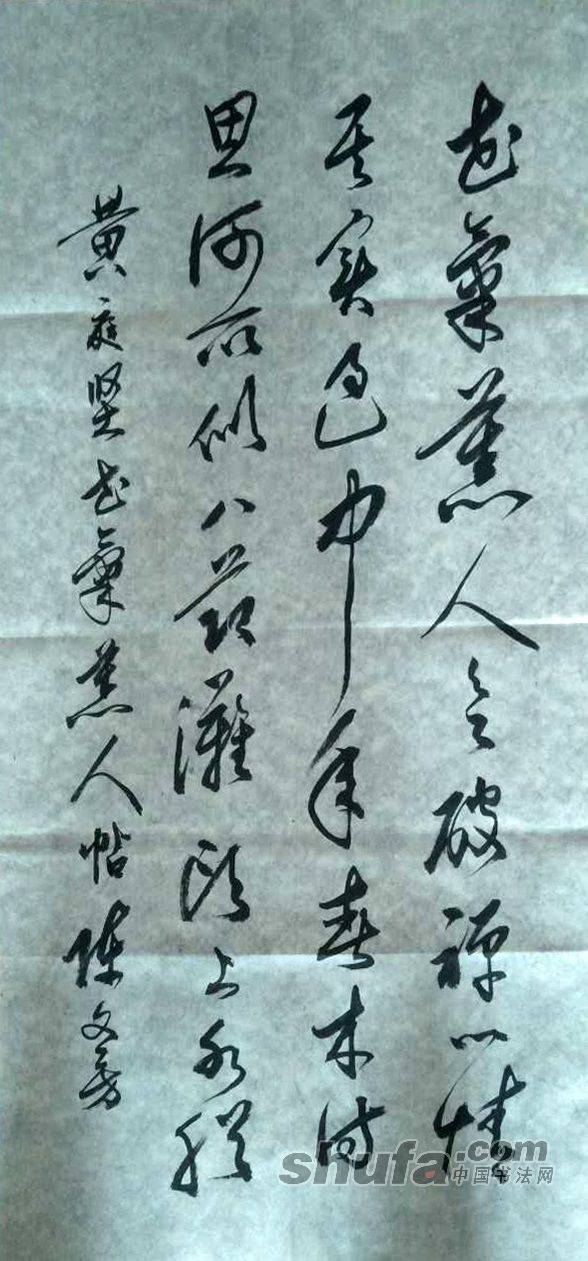 花氣薰人欲破禪心情
其實過中年春来詩
思何所似八節灘頭上水船
黄庭坚花氣薰人帖 陈文芳
shufa.com
中国书法网